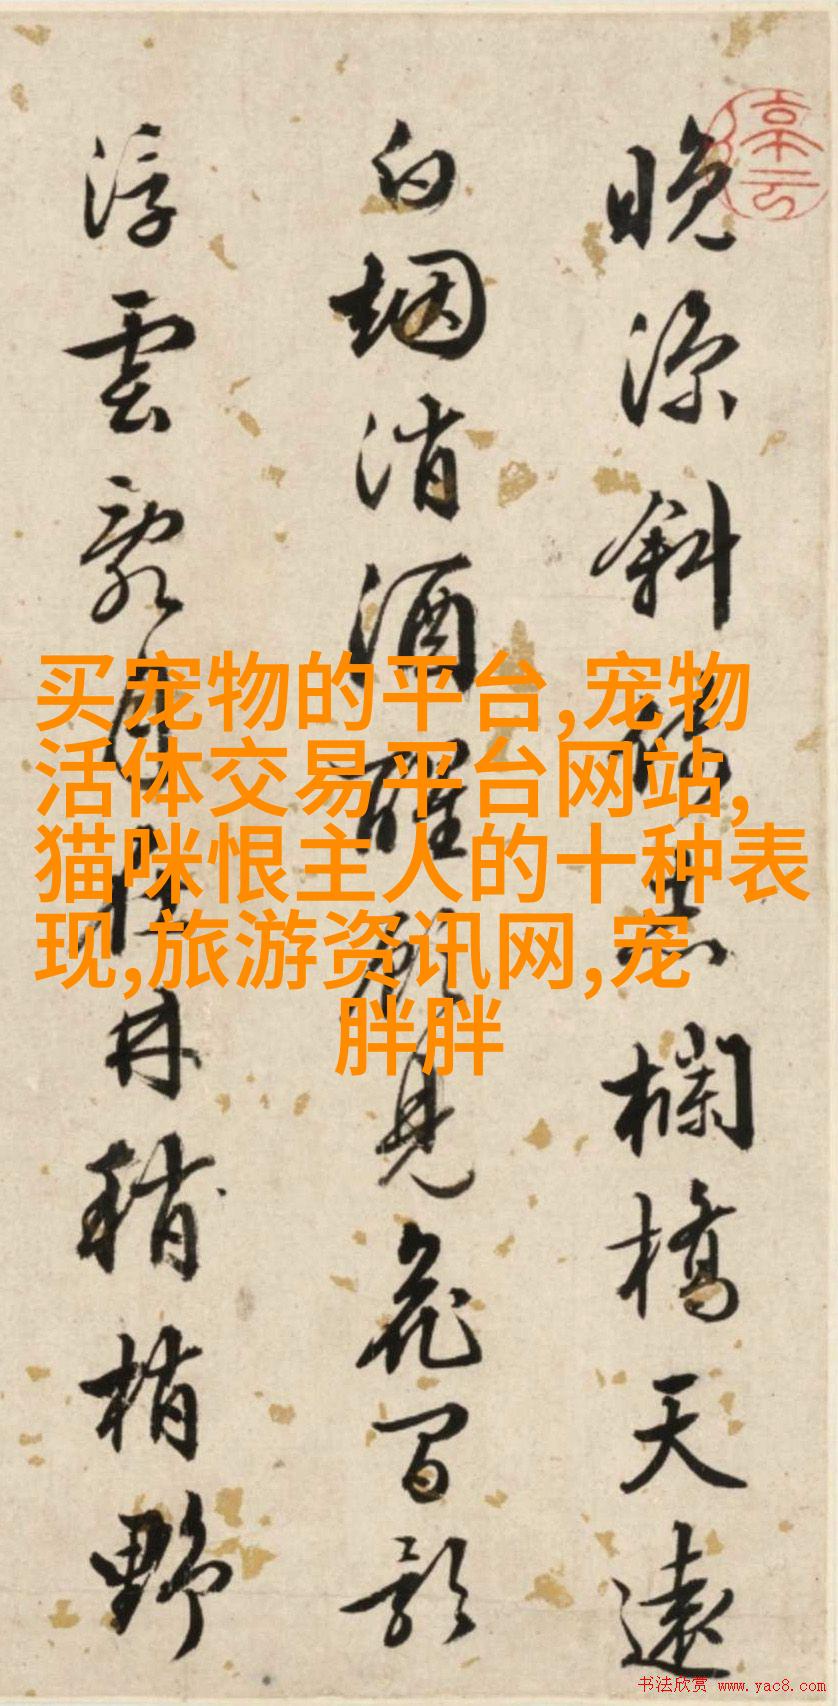 买宠物的平台,宠物
活体交易平台网站,
猫咪恨主人的十种表
现,旅游资讯网,宠
胖胖
晚涼斜倚赤欄橋天遠
白烟消酒醒見花間影
浮雲月林稍梢野
书法欣赏 www.yac8.com